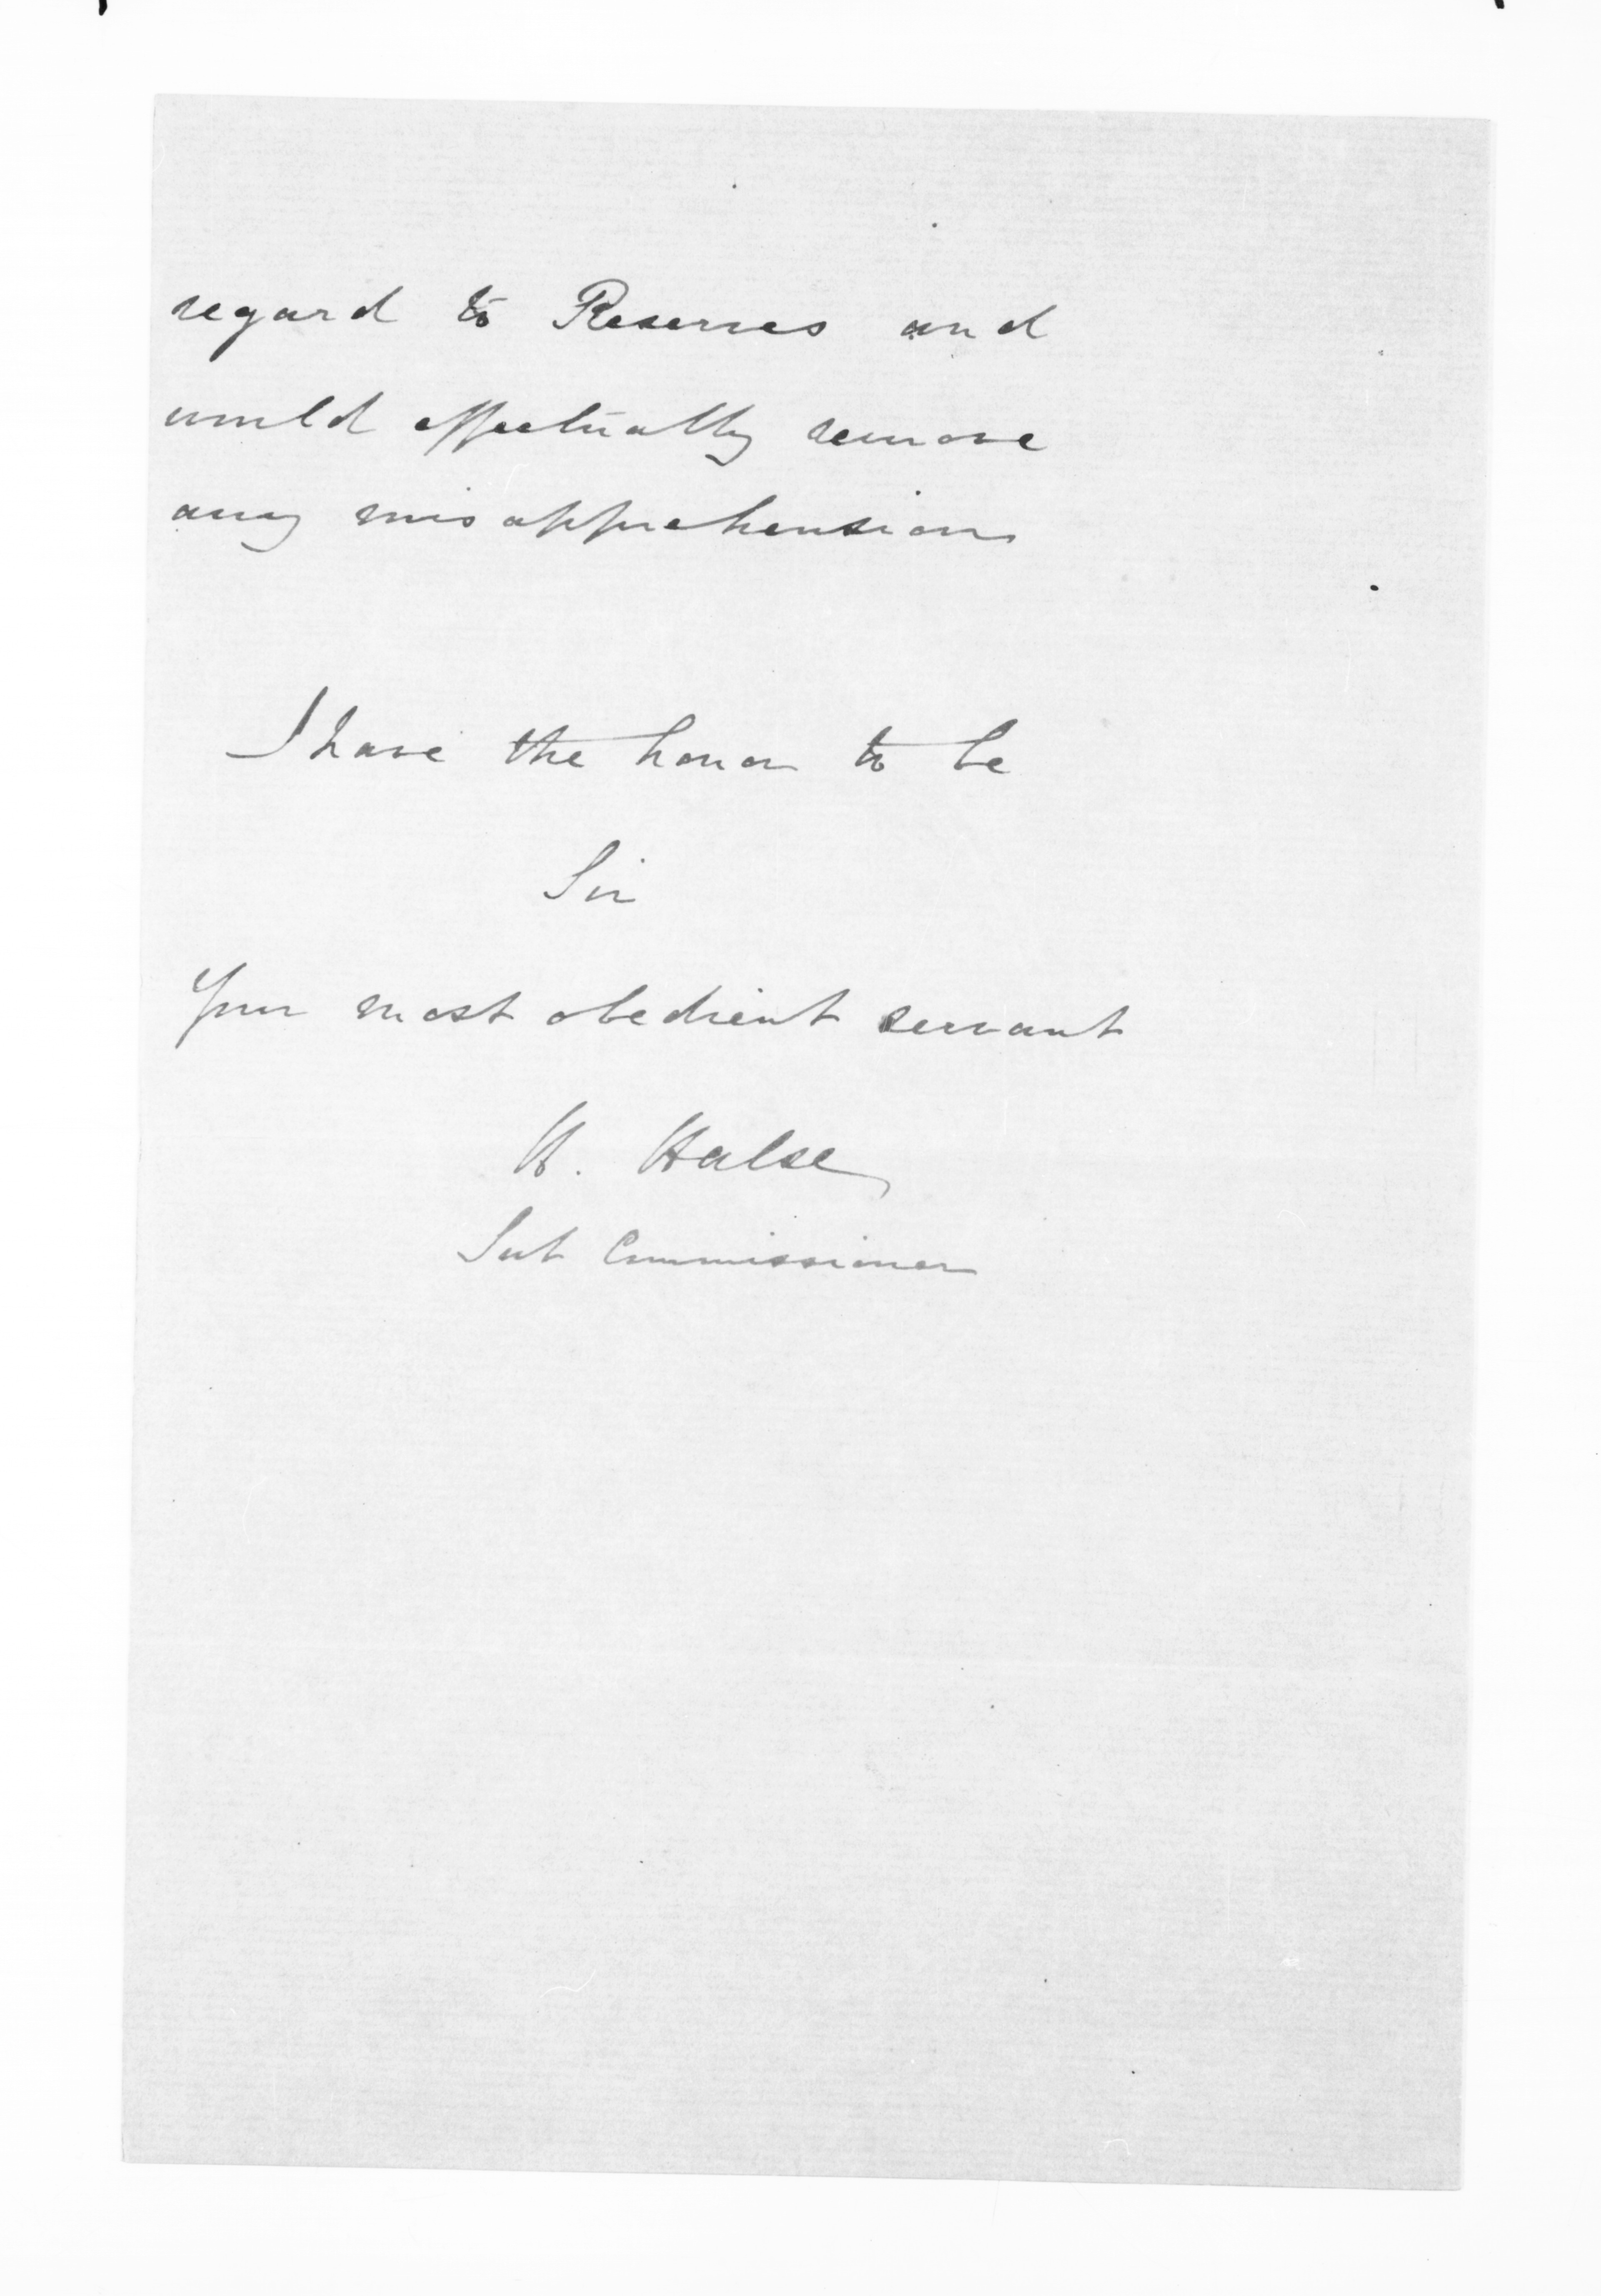 regard to Reserves and
would effectually remove
any misapprehension
I have the honor to be
Sir
Your most obedient servant
H. Halse
Sub Commissioner